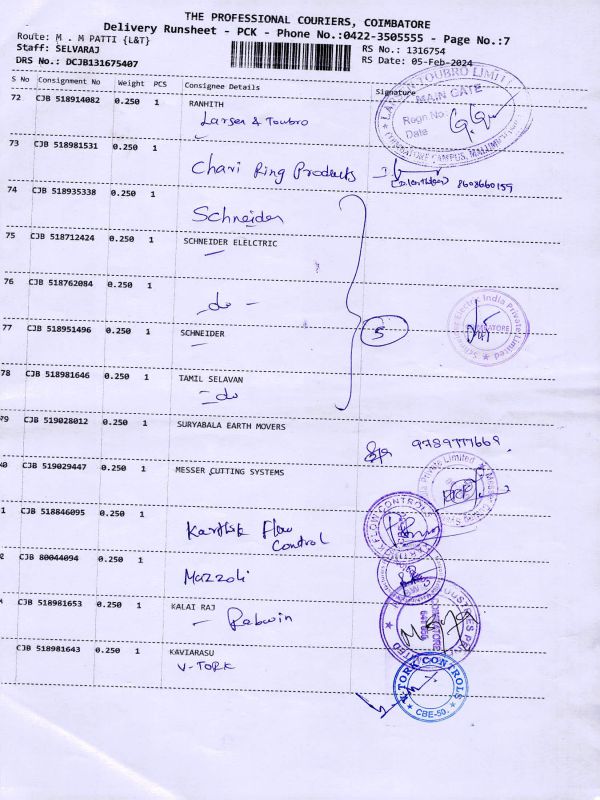 THE PROFESSIONAL COURIERS, COIMBATORE
Delivery Runsheet - PCK - Phone No.:0422-3505555 - Page No.:7
Route: M . M PATTI {L&T}
RS No.: 1316754
Staff: SELVARAJ
RS Date: 05-Feb-2024
DRS No.: DCJB131675407
S No Consignment Weight PCS Consignee Details Signature
72 CJB 518914082 0.250 1 RANHITH
Larsen & Toubro
MAIN GATE
Regn No
Date
73 CJB 518981531 0.250 1
Chari Ring Products
8608660159
74 CJB 518935338 0.250 1
Schneider
75 CJB 518712424 0.250 1 SCHNEIDER ELELCTRIC
76 CJB 518762084 0.250 1
- do -
77 CJB 518951496 0.250 1 SCHNEIDER
5
78 CJB 518981646 0.250 1 TAMIL SELAVAN
- do
79 CJB 519028012 0.250 1 SURYABALA EARTH MOVERS
9789777668
80 CJB 519029447 0.250 1 MESSER CUTTING SYSTEMS
1 CJB 518846095 0.250 1
Karthik Flow
Control
2 CJB 80044094 0.250 1
Mazzoli
CJB 518981653 0.250 1 KALAI RAJ
CJB 518981643 0.250 1 KAVIARASU
V-TORK
V-TORK CONTROLS
CBE-50.